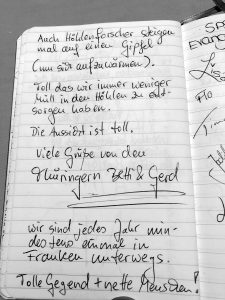 Auch Höhlenforscher steigen
mal auf einen Gipfel
(um sich aufzuwärmen).
Toll das wir immer weniger
Müll in den Höhlen zu ent-
sorgen haben.
Die Aussicht ist toll.
Viele Grüße von den
Thüringern Betti & Gerd
wir sind jedes Jahr min-
destens einmal in
Franken unterwegs.
Tolle Gegend + nette Menschen!